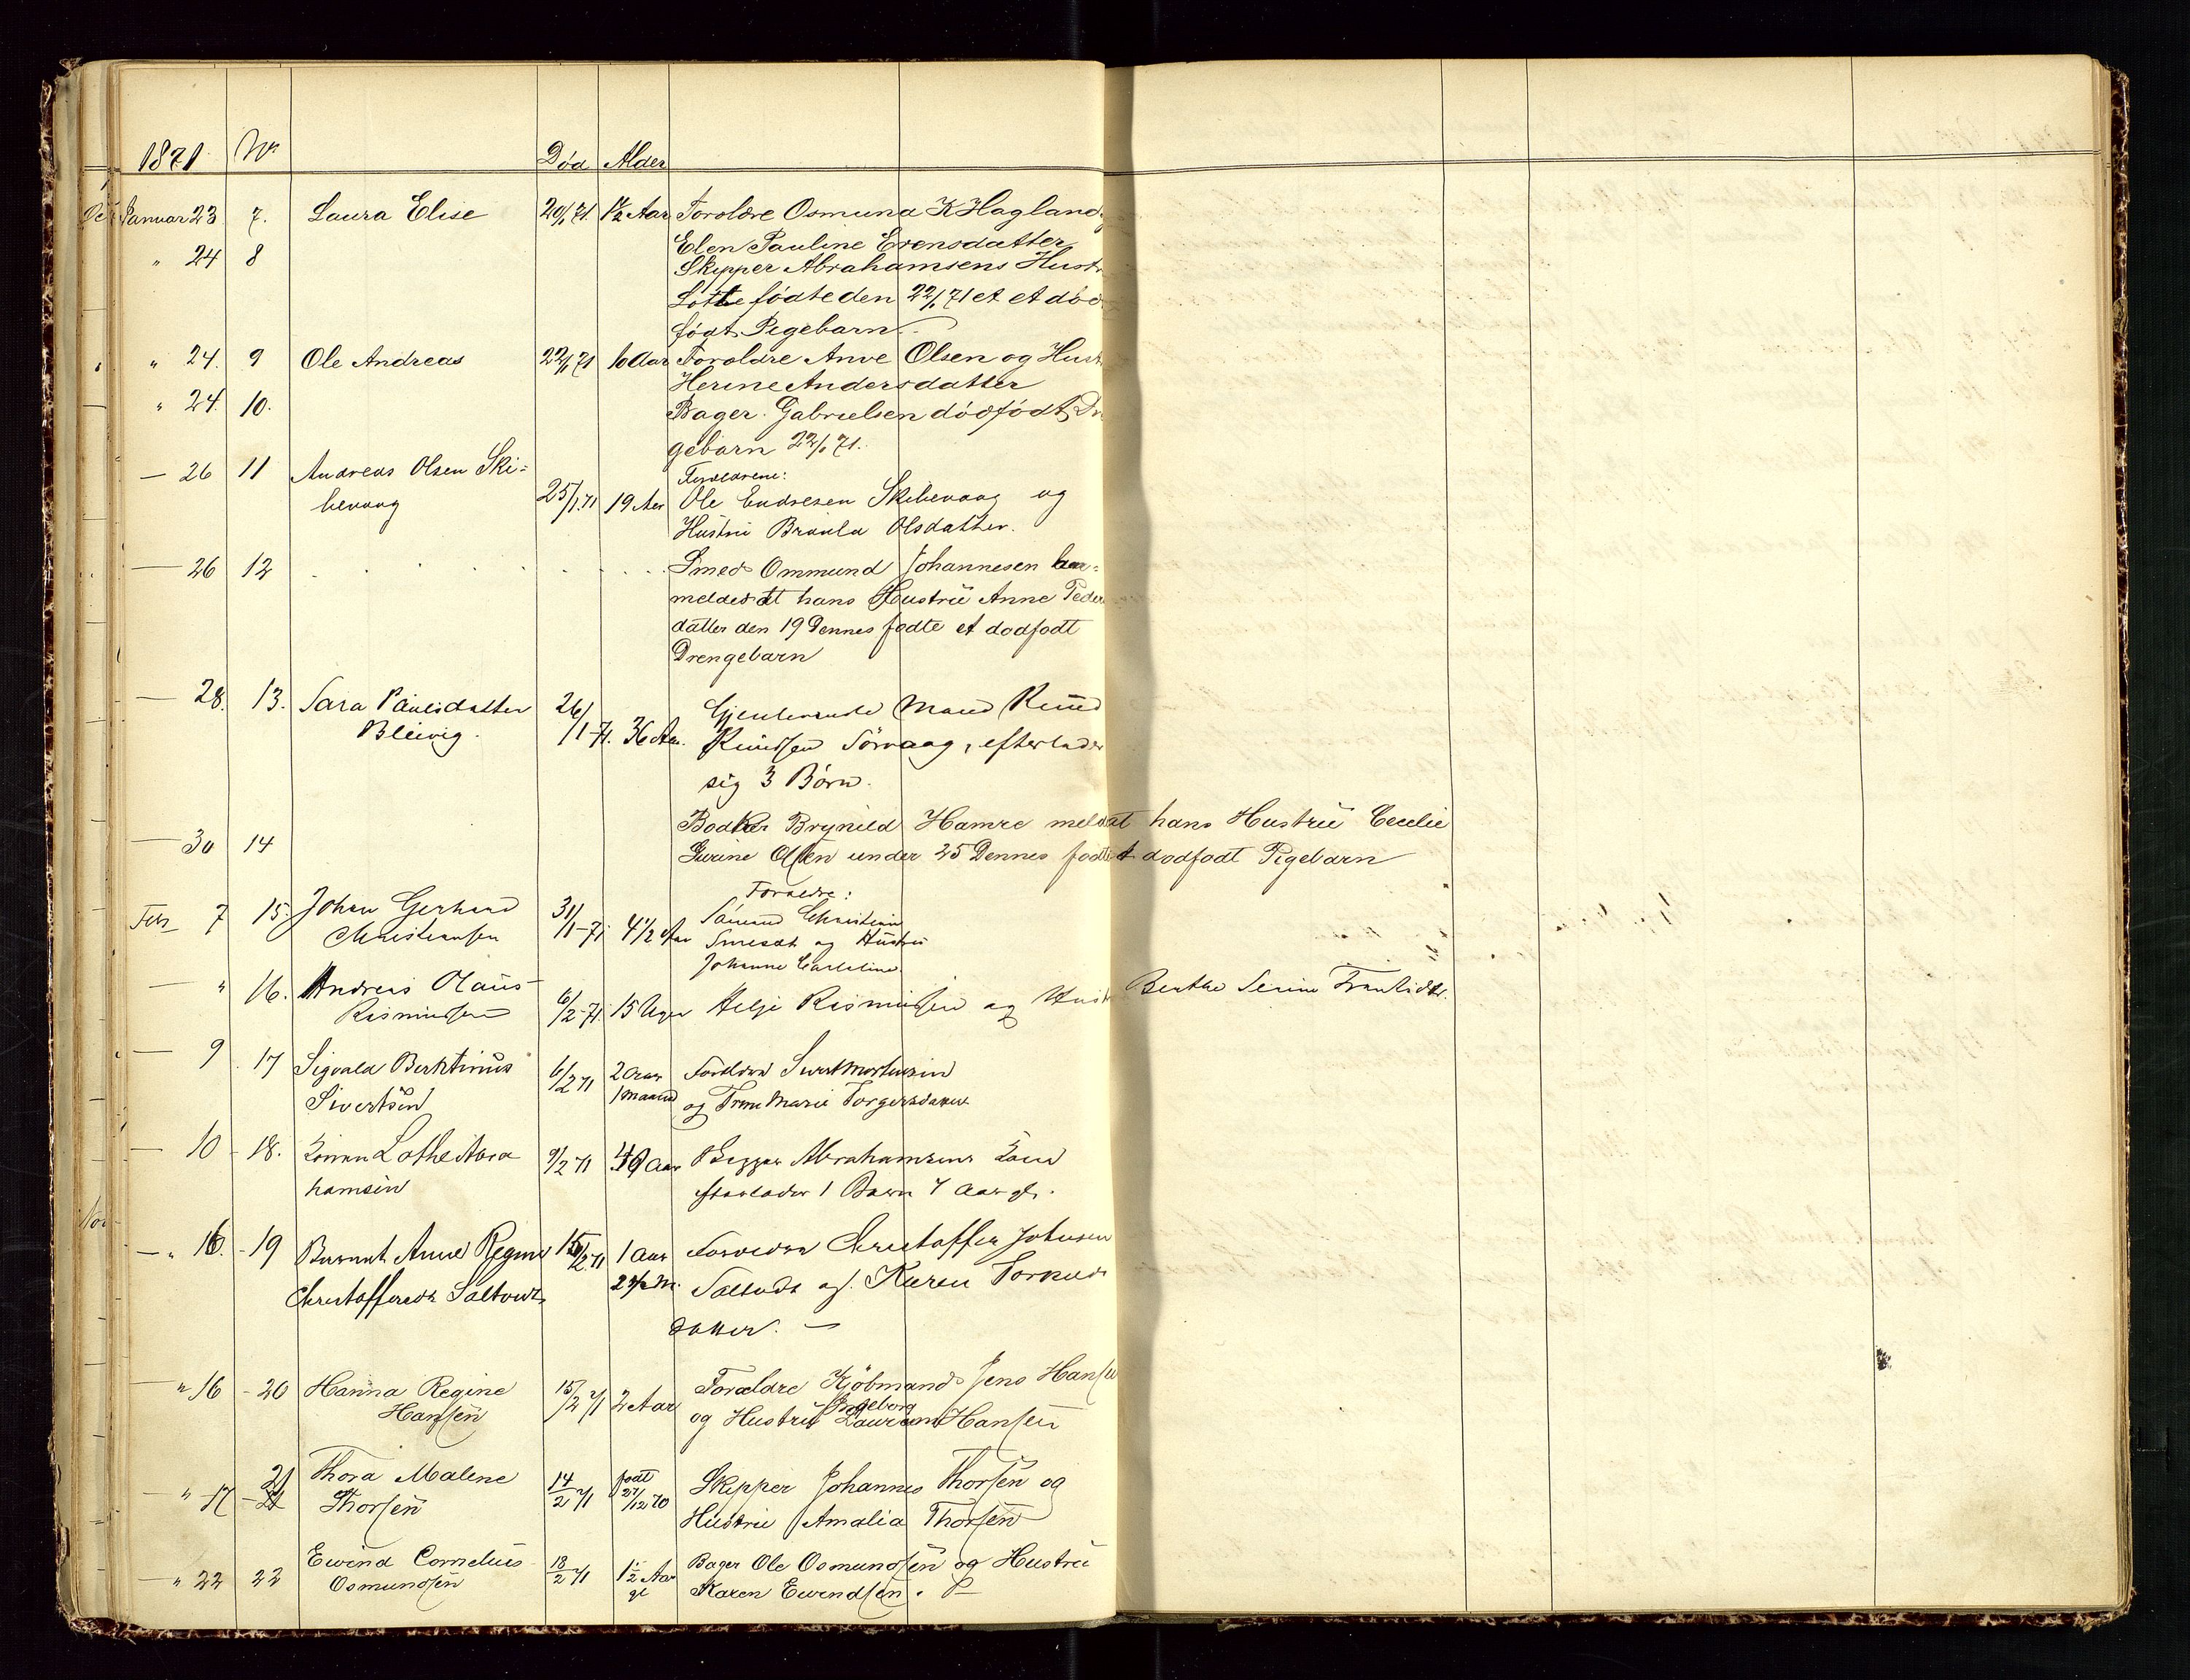 1871 No Død Alder
Januar 23 7. Laura Elise 20/1 71 1½ Aar Foroldre Osmund K Hagland
Elen Pauline Evensdatter
" 24 8 Skipper Abrahamsens Hustr
Lotte fødte den 22/1 71 et et død
født Pigebarn
" 24. 9 Ole Andreas 22/1 71 10 Aar Foroldre Anve Olsen og Hust
Herine Andersdatter
" 24. 10. Bager Gabrielsen dødfødt Dr
gebarn 22/1 71.
— 26 11 Andreas Olsen Ski=
Forældrene:
bevaag 25/1.71 19 Aar Ole Endresen Skibevaag og
Hustru Braula Olsdatter.
— 26 12 Smed Ommund Johannesen har
meldet at hans Hustru Anne Peder
datter den 19 Dennes fødte et dødfødt
Drengebarn
— 28. 13. Sara Paulsdatter 26/1-71. 36 Aar. Gjenlevende Mand Knud
Bleivig. Knudsen Sørvaag, efterlader
sig 3 Børn.
— 30 14 Bødker Brynild Hamre meld at hans Hustru Cecilie
Gurine Olsen under 25 Dennes fødte et dødfødt Pigebarn
Foreldre:
Feb 7 15. Johan Gerhard 31/1-71 4 1/2 Aar Christian
Christiansen og Hustru
Johanne
— " 16. Andreas Olaus
Rasmussen 6/2-71. 15 Uger Helje Rasmussen og Hust Berthe Serine
— 9 17 Sigvald Berktinius 6/2 71 2 Aar Foreldre Sivert Mortensen
Sivertsen 1 Maaned og Trine Marie Torgersdatter
— 10 - 18. Lothe Abra 9/2 71 40 Aar Abrahamsens
hamsen 1 Barn 7 Aar gl.
— " 16. - 19 Anne Regine 15/2.71 1 Aar Foreldre Christoffer Johnsen
Christoffersdr 2½ M. og Karen Torkels
datter. —
" 16 - 20 Hanna Regine 15/2 71 2 Aar Forældre Kjöbmand Jens Hansen
Hansen og Hustru Ingeborg Hansen
" 17 - 21 Thora Malene 14/2 71 født 27/12 70 Skipper Johannes Thorsen og
Thorsen Hustru Amalia Thorsen
" 22 22 Ewind Cornelius 18/2 71 1½ Aar Bager Ole Osmundsen og Hustru
Osmundsen gl Karen Ewendsen.